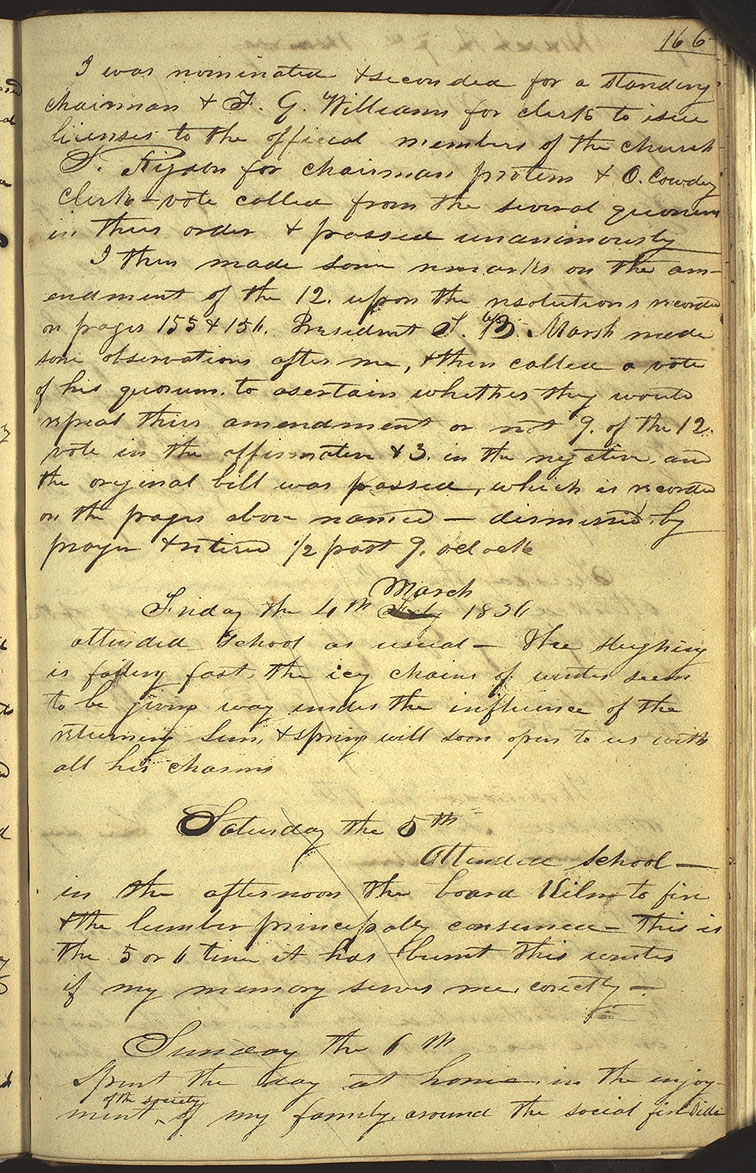 166
I was nominated & seconded for a standing
chairman & F. G. Williams for clerk to issue
licenses to the official members of the church
S. Rigdon for chairman protem & O. Cowdry
Clerk – vote called from the several quorums
in their order & passed unanimously
I then made some remarks on the am-
endment of the 12. upon the resolutions recorded
on pages 155 & 156. President T. B. Marsh made
some observations after me, & then called a vote
of his quorum. to asertain whether they would
repeal their amendment or not 9. of the 12.
vote in the affirmative & 3. in the negative, and
the original bill was passed, which is recorded
on the pages above named – dismissed by
prayer & retired ½ past 9. oclock
March
Friday the 4th Feby 1836
attended school as usual – The sleighing
is failing fast, the icy chains of winter seem
to be giving way under the influence of the
returning Sun, & spring will soon open to us with
all his charms
Saturday the 5th
Attended school –
in the afternoon the board Kiln to fire
& the lumber principally consumed – this is
the 5 or 6 time it has burnt this winter
if my memory serves me corectly –
Sunday the 6th
Spent the day at home in the enjoy-
of the society
ment of my family, around the social fireside